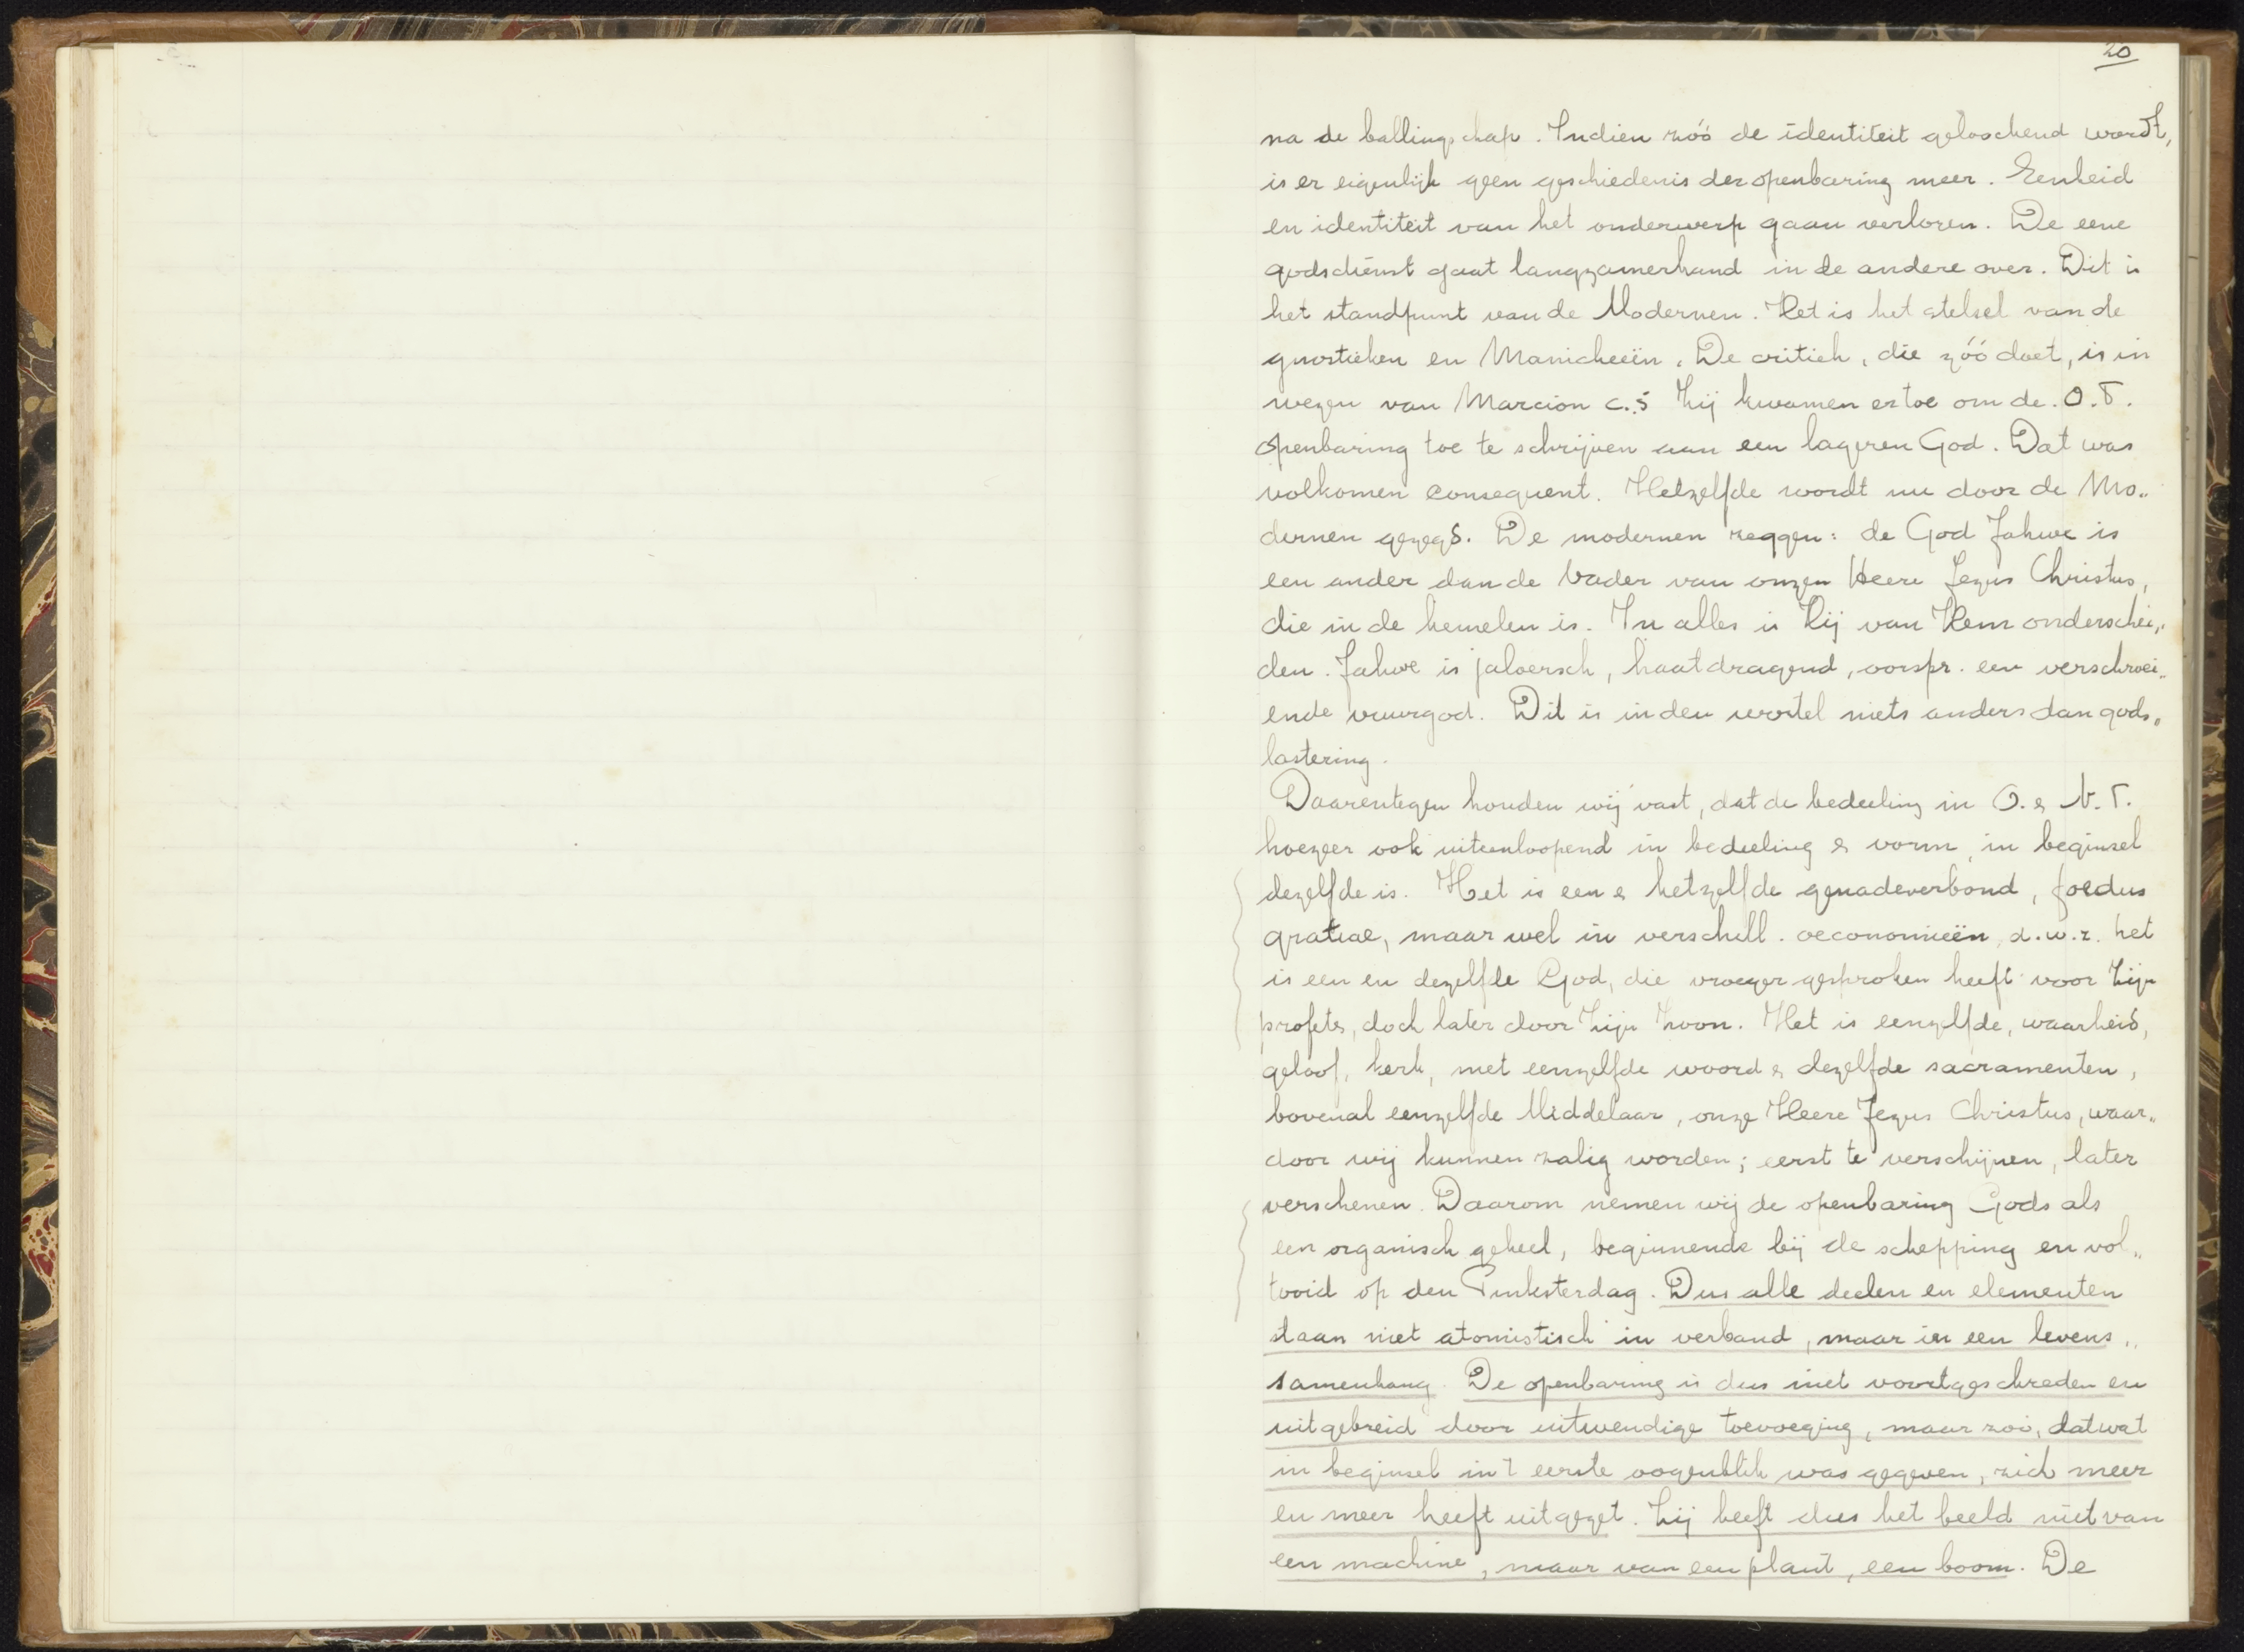 20
na de ballingschap. Indien zóó de identiteit geloochend wordt,
is er eigenlijk geen geschiedenis der openbaring meer. Eenheid
en identiteit van het onderwerp gaan verloren. De eene
godsdienst gaat langzamerhand in de andere over. Dit is
het standpunt van de Modernen. Het is het stelsel van de
gnostieken en Manicheeën. De critiek, die zóó doet, is in
wezen van Marcion c.s. Zij kwamen ertoe om de O.T.
Openbaring toe te schrijven aan een lageren God. Dat was
volkomen consequent. Hetzelfde wordt nu door de Mo„
dernen gezegd. De modernen zeggen: de God Jahwe is
een ander dan de Vader van onzen Heere Jezus Christus,
die in de hemelen is. In alles is Hij van Hem onderschei„
den. Jahwe is jaloersch, haatdragend, oorspr. een verschroei„
ende vuurgod. Dit is in den wortel niets anders dan gods„
lastering.
Daarentegen houden wij vast, dat de bedeeling in O. & N.T.
hoezeer ook uiteenloopend in bedeeling & vorm, in beginsel
dezelfde is. Het is een & hetzelfde genadeverbond, foedus
gratiae, maar wel in verschill. oeconomieën, d.w.z. het
is een en dezelfde God, die vroeger gesproken heeft voor Zijn
profets, doch later door Zijn Zoon. Het is eenzelfde, waarheid,
geloof, kerk, met eenzelfde woord & dezelfde sacramenten,
bovenal eenzelfde Middelaar, onze Heere Jezus Christus, waar„
door wij kunnen zalig worden; eerst te verschijnen, later
verschenen. Daarom nemen wij de openbaring Gods als
een organisch geheel, beginnende bij de schepping en vol„
tooid op den Pinksterdag. Dus alle deelen en elementen
staan niet atomistisch in verband, maar in een levens„
samenhang. De openbaring is dus niet voortgeschreden en
uitgebreid door uitwendige toevoeging, maar zoó, dat wat
in beginsel in 't eerste oogenblik was gegeven, zich meer
en meer heeft uitgezet. Zij heeft dus het beeld niet van
een machine, maar van een plant, een boom. De